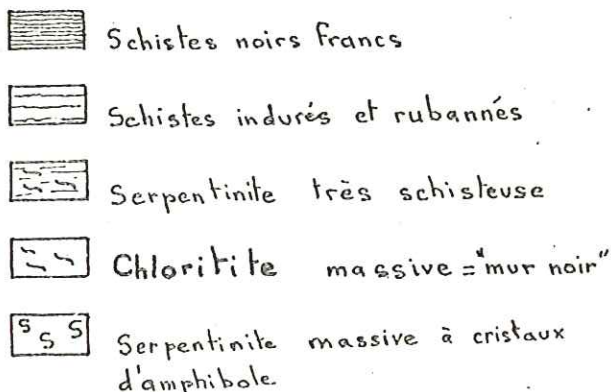 Schistes noirs francs
Schistes indurés et rubannés
Serpentinite très schisteuse
Chloritite massive = "mur noir"
S S S
Serpentinite massive à cristaux
d'amphibole.